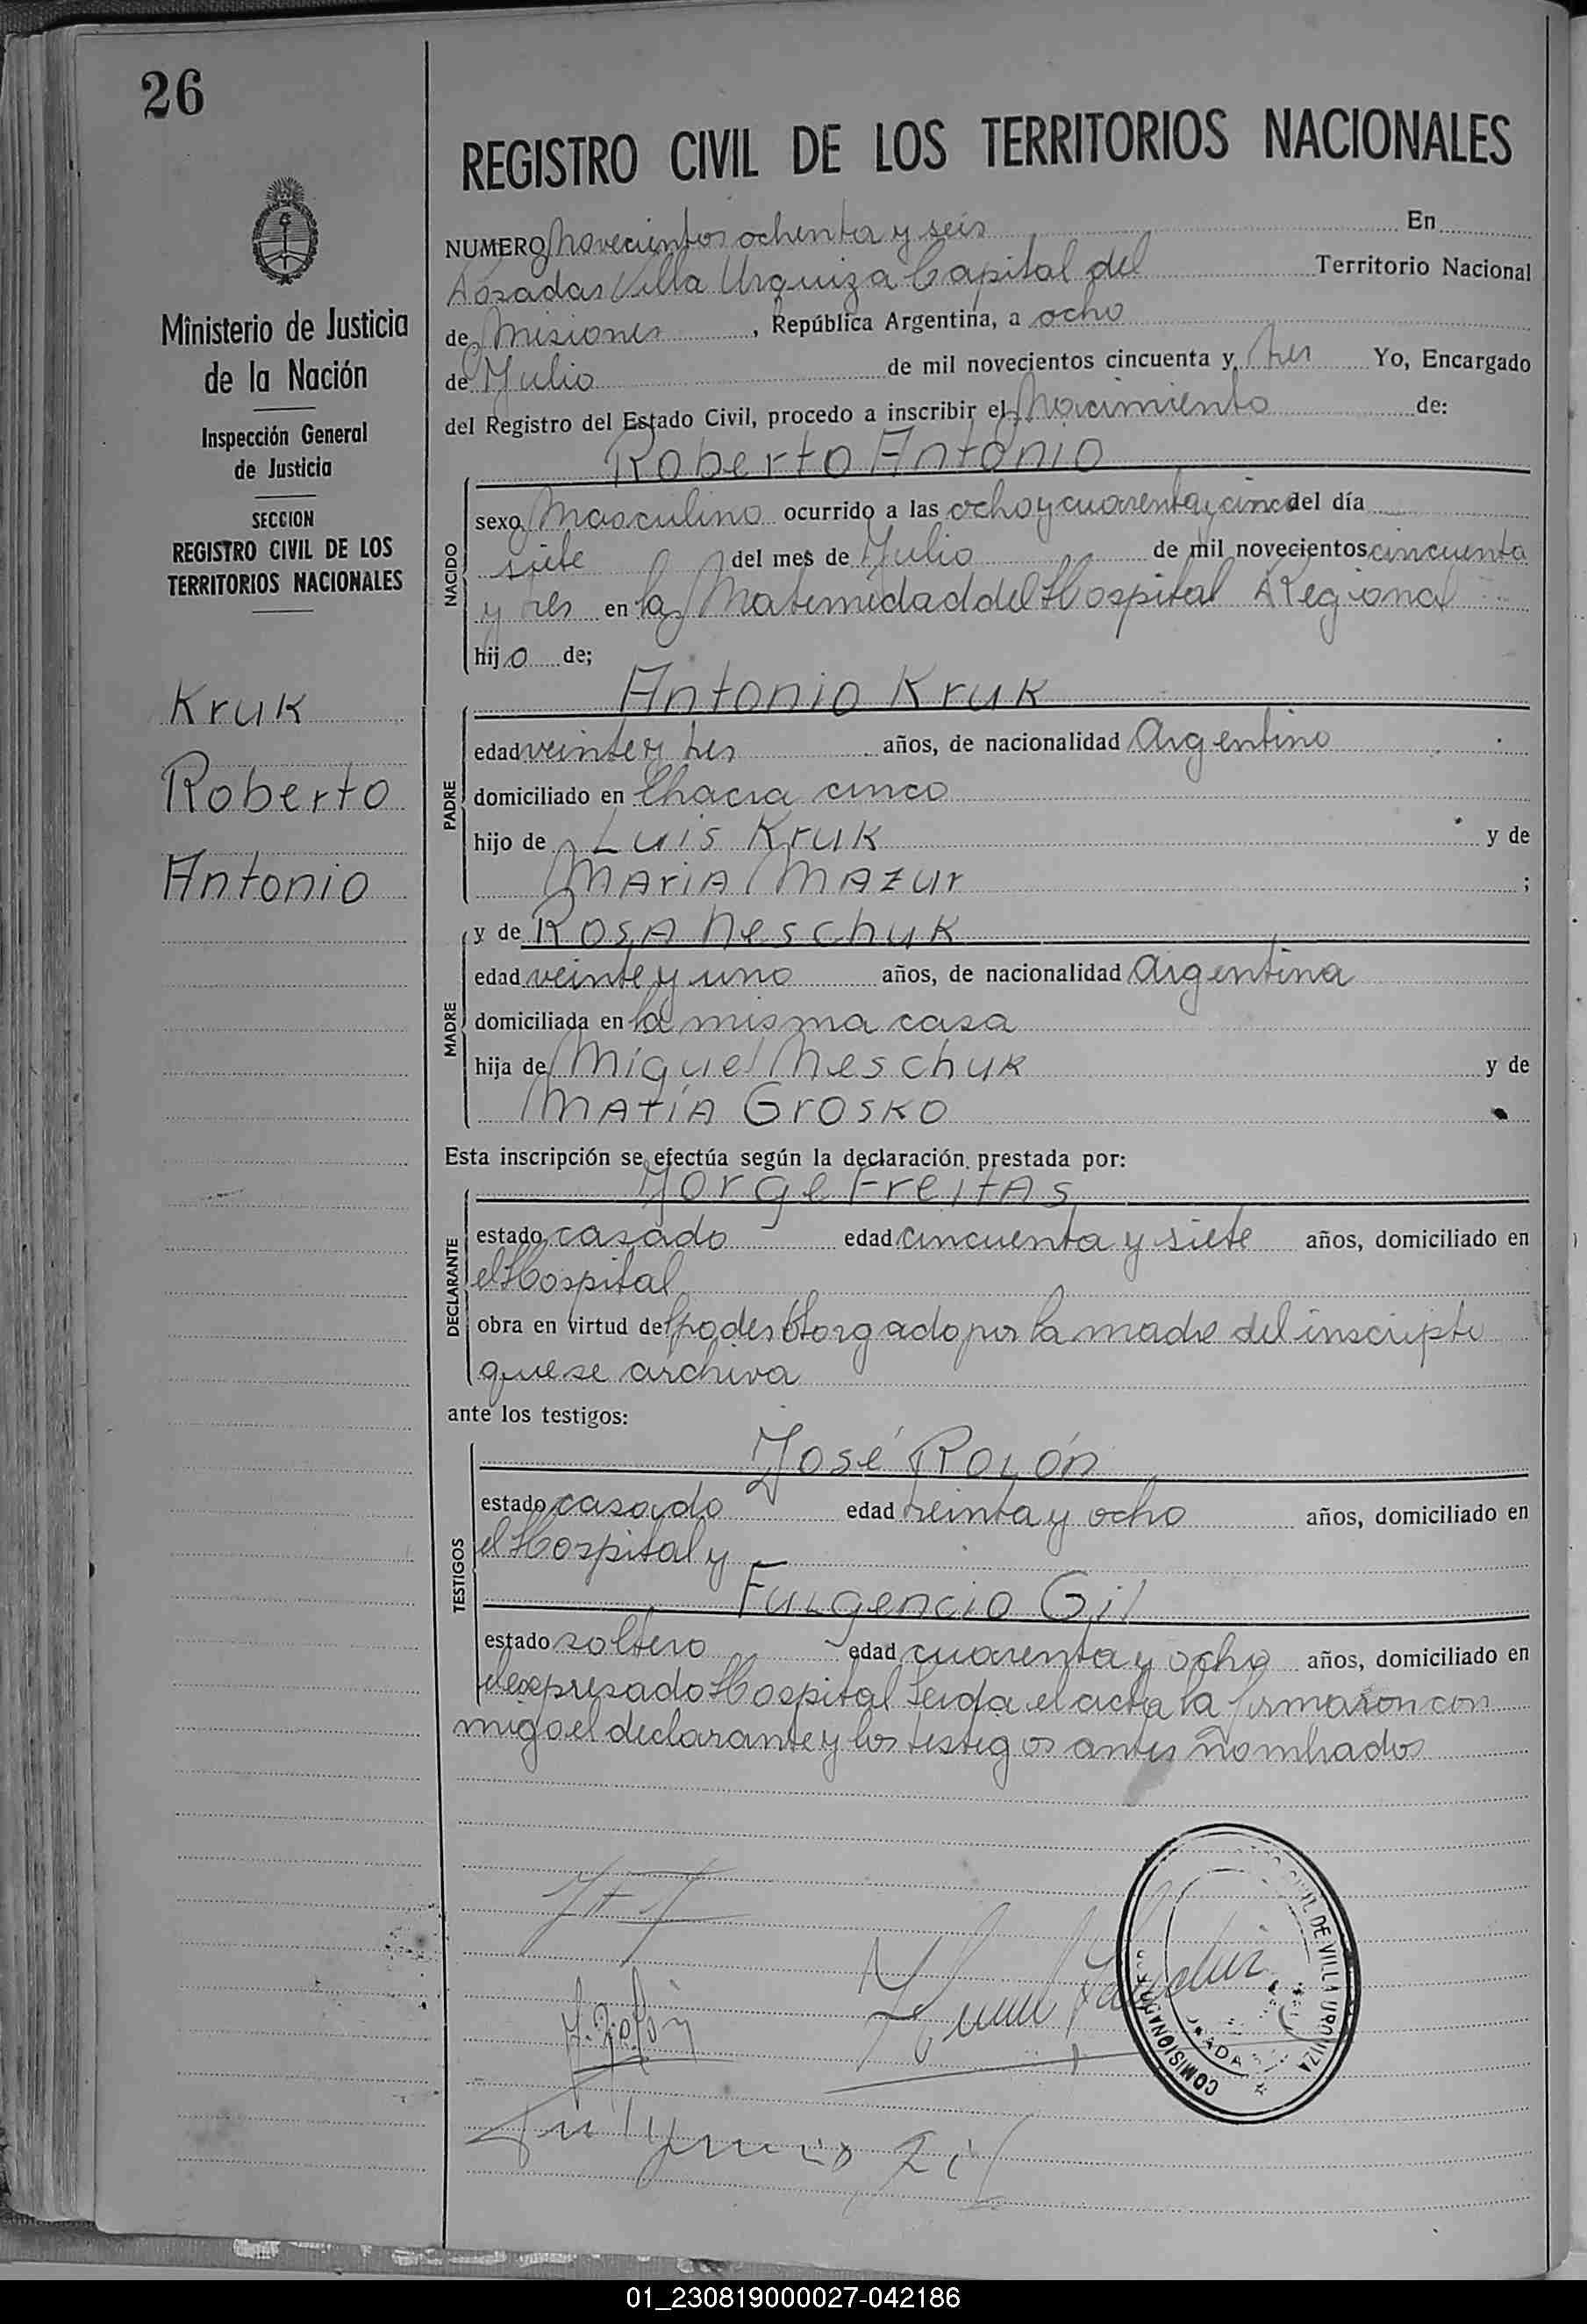 26
REGISTRO CIVIL DE LOS TERRITORIOS NACIONALES
Ministerio de Justicia
de la Nación
Inspección General
de Justicia
SECCION
REGISTRO CIVIL DE LOS
TERRITORIOS NACIONALES
Kruk
Roberto
Antonio
NUMERO Novecientos ochenta y seis En
Posadas Villa Urquiza Capital del Territorio Nacional
de Misiones, República Argentina, a ocho
de Julio de mil novecientos cincuenta y tres Yo, Encargado
del Registro del Estado Civil, procedo a inscribir el Nacimiento de:
Roberto Antonio
NACIDO
sexo Masculino ocurrido a las ocho y cuarenta y cinco del día
siete del mes de Julio de mil novecientos cincuenta
y tres en la Maternidad del Hospital Regional
hijo de;
Antonio Kruk
PADRE
edad veinte y tres años, de nacionalidad Argentino
domiciliado en Chacra cinco
hijo de Luis Kruk y de
Maria Mazur ;
MADRE
y de Rosa Neschuk
edad veinte y uno años, de nacionalidad Argentina
domiciliada en la misma casa
hija de Miguel Neschuk y de
María Grosko
Esta inscripción se efectúa según la declaración prestada por:
Jorge Freitas
DECLARANTE
estado casado edad cincuenta y siete años, domiciliado en
el Hospital
obra en virtud del poder otorgado por la madre del inscripto
que se archiva
ante los testigos:
José Rolón
TESTIGOS
estado casado edad treinta y ocho años, domiciliado en
el Hospital y
Fulgencio Gil
estado soltero edad cuarenta y ocho años, domiciliado en
el expresado Hospital Leida el acta la firmaron con
migo el declarante y los testigos antes nombrados
J. Rolón
Fulgencio Gil
CIVIL DE VILLA URQUIZA
POSADAS
01_230819000027-042186